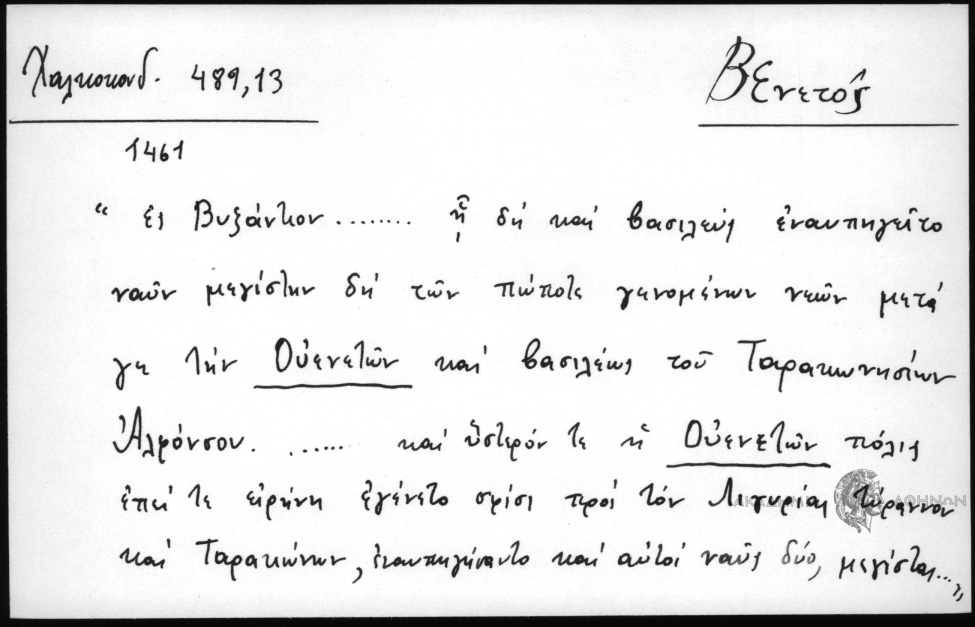 Χαλκοκονδ. 489,13
Βενετός
1461
“ ἐς Βυζάντιον ........ ᾗ δή καί βασιλεύς ἐναυπηγεῖτο
ναῦν μεγίστην δή τῶν πώποτε γενομένων νεῶν μετά
γε τήν Οὐενετῶν καί βασιλέως τοῦ Ταρακωνησίων
Ἀλφόνσου. ...... καί ὕστερόν τε ἡ Οὐενετῶν πόλις
ἐπεί τε εἰρήνη ἐγένετο σφίσι πρός τόν Λιγυρίας τύραννον
καί Ταρακώνων, ἐναυπηγήσαντο καί αὐτοί ναῦς δύο, μεγίστας...„
ΑΘΗΝΩΝ